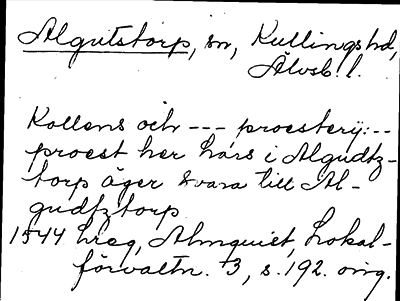 Algutstorp, sn, Kullings hd,
Älvsb. l.
Kollens och --- proestery:--
proest her Lars i Algudtz-
torp äger svara till Al-
gudtztorp
1544 Lreg, Almquist, Lokal-
förvaltn. 3, s. 192. orig.